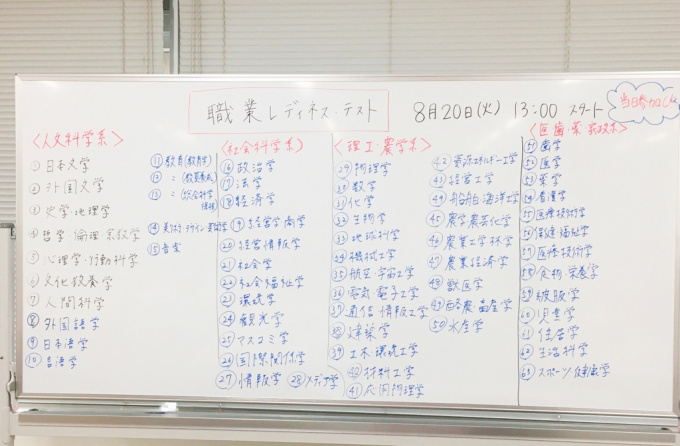 職業レディネス・テスト
8月20日(火) 13:00 スタート
当日参加OK
<人文科学系>
① 日本文学
② 外国文学
③ 史学・地理学
④ 哲学 倫理 宗教学
⑤ 心理学・行動科学
⑥ 文化教養学
⑦ 人間科学
⑧ 外国語学
⑨ 日本語学
⑩ 言語学
⑪ 教育(教育学)
⑫ 〃 (教員養成)
⑬ 〃 (総合科学課程)
⑭ 美術 デザイン 実技学
⑮ 音楽
<社会科学系>
⑯ 政治学
⑰ 法学
⑱ 経済学
⑲ 経営学 商学
⑳ 経営情報学
㉑ 社会学
㉒ 社会福祉学
㉓ 環境学
㉔ 観光学
㉕ マスコミ学
㉖ 国際関係学
㉗ 情報学 ㉘ メディア学
<理工・農学系>
㉙ 物理学
㉚ 数学
㉛ 化学
㉜ 生物学
㉝ 地球科学
㉞ 機械工学
㉟ 航空・宇宙工学
㊱ 電気 電子工学
㊲ 通信 情報工学
㊳ 建築学
㊴ 土木 環境工学
㊵ 材料工学
㊶ 応用物理学
㊷ 資源エネルギー工学
㊸ 経営工学
㊹ 船舶 海洋工学
㊺ 農学 農芸化学
㊻ 農業工学 林学
㊼ 農業経済学
㊽ 獣医学
㊾ 酪農 畜産学
㊿ 水産学
医・歯・薬・家政系>
歯学
医学
薬学
看護学
医療技術学
保健 福祉学
医療技術学
食物・栄養学
被服学
児童学
住居学
生活科学
スポーツ 健康学